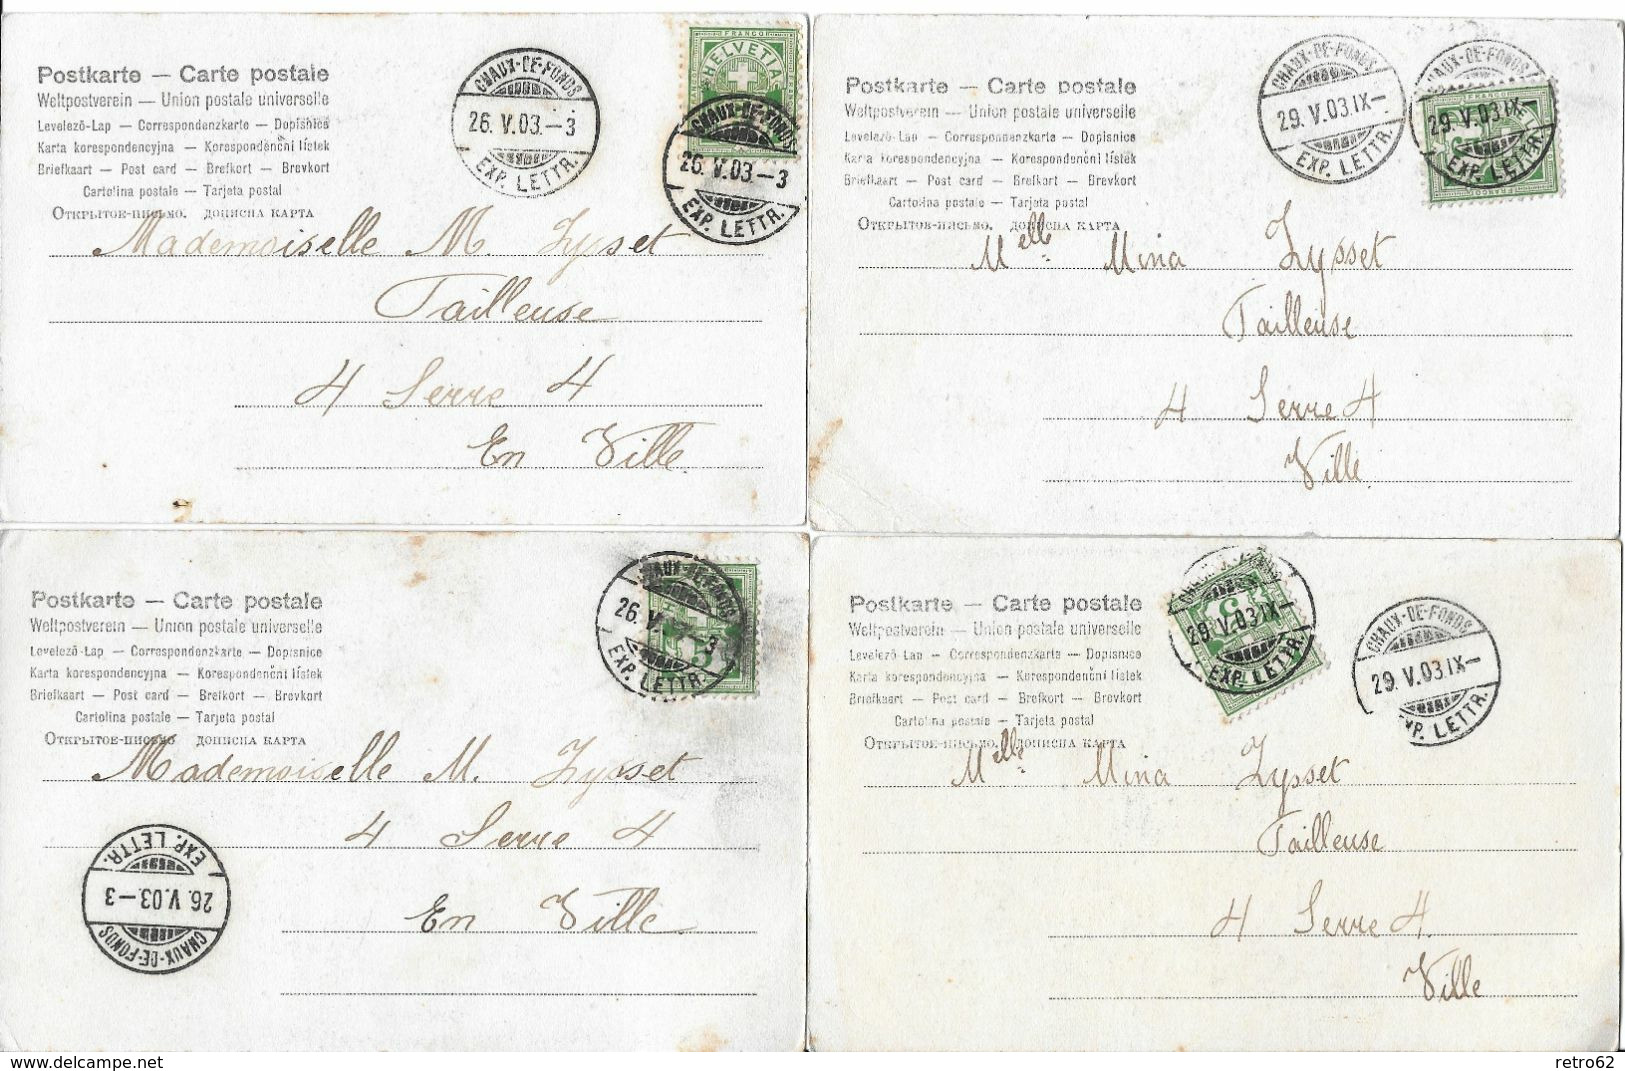 Postkarte — Carte postale
Weltpostverein — Union postale universelle
Levelező-Lap — Correspondenzkarte — Dopisnice
Karta korespondencyjna — Korespondenční lístek
Briefkaart — Post card — Brefkort — Brevkort
Cartolina postale — Tarjeta postal
Открытое-письмо. дописна карта
CHAUX-DE-FONDS
26. V. 03. – 3
EXP. LETTR.
FRANCO
HELVETIA
CHAUX-DE-FONDS
26. V. 03. – 3
EXP. LETTR.
Mademoiselle M. Zysset
Tailleuse
4 Serre 4
En Ville.
Postkarte — Carte postale
Weltpostverein — Union postale universelle
Levelező-Lap — Correspondenzkarte — Dopisnice
Karta korespondencyjna — Korespondenční lístek
Briefkaart — Post card — Brefkort — Brevkort
Cartolina postale — Tarjeta postal
Открытое-письмо. дописна карта
CHAUX-DE-FONDS
29. V. 03 IX –
EXP. LETTR.
CHAUX-DE-FONDS
29. V. 03 IX –
EXP. LETTR.
FRANCO
Melle Mina Zysset
Tailleuse
4 Serre 4
Ville
Postkarte — Carte postale
Weltpostverein — Union postale universelle
Levelező-Lap — Correspondenzkarte — Dopisnice
Karta korespondencyjna — Korespondenční lístek
Briefkaart — Post card — Brefkort — Brevkort
Cartolina postale — Tarjeta postal
Открытое-письмо. дописна карта
CHAUX-DE-FONDS
26. V. 03 – 3
EXP. LETTR.
5
Mademoiselle M. Zysset
4 Serre 4
En Ville
CHAUX-DE-FONDS
26. V. 03 – 3
EXP. LETTR.
Postkarte — Carte postale
Weltpostverein — Union postale universelle
Levelező-Lap — Correspondenzkarte — Dopisnice
Karta korespondencyjna — Korespondenční lístek
Briefkaart — Post card — Brefkort — Brevkort
Cartolina postale — Tarjeta postal
Открытое-письмо. дописна карта
29. V. 03 IX –
EXP. LETTR.
5
CHAUX-DE-FONDS
29. V. 03 IX –
EXP. LETTR.
Melle Mina Zysset
Tailleuse
4 Serre 4.
Ville
delcampe.net
retro62